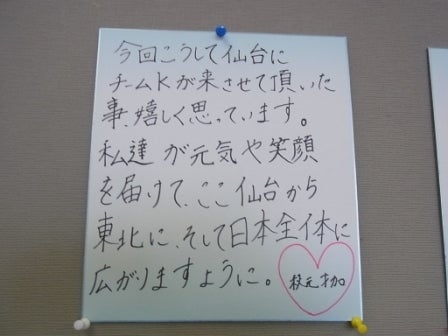 今回こうして仙台に
チームKが来させて頂いた
事、嬉しく思っています。
私達が元気や笑顔
を届けて、ここ仙台から
東北に、そして日本全体に
広がりますように。
秋元才加